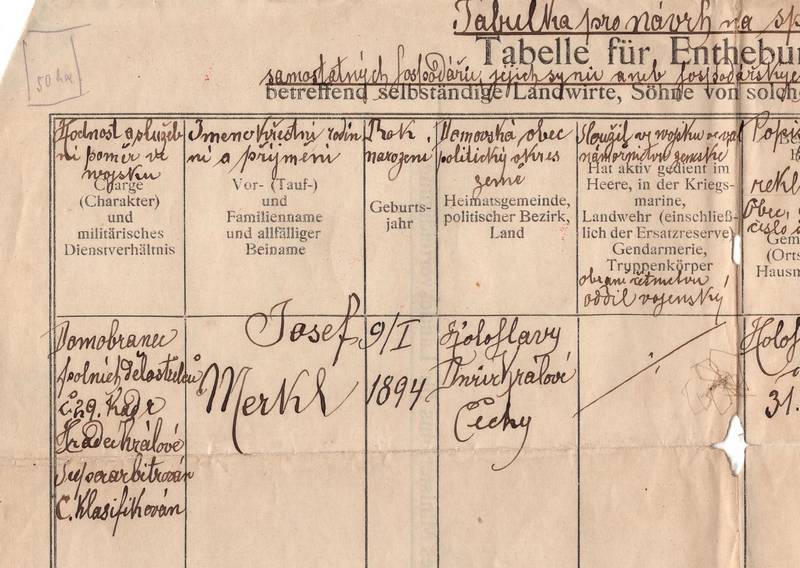 Tabulka pro návrh na
Tabelle für Enthebun
samostatných hospodářů, jejich synů aneb hospodářských
betreffend selbständige Landwirte, Söhne von solch
50 ha
Hodnost a služeb
ní poměr ve
vojsku
Charge
(Charakter)
und
militärisches
Dienstverhältnis
Jmeno křestní rodin
ní a příjmení
Vor- (Tauf-)
und
Familienname
und allfälliger
Beiname
Rok
narození
Geburts-
jahr
Domovská obec
politický okres
země
Heimatsgemeinde,
politischer Bezirk,
Land
Sloužil ve vojsku
námořnictvu zemské
Hat aktiv gedient im
Heere, in der Kriegs-
marine,
Landwehr (einschließ-
lich der Ersatzreserve)
Gendarmerie,
Truppenkörper
obraně četnictvu
oddíl vojenský
Popis
rekl
Obec,
číslo
Gem
(Orts
Hausm
Domobranec
polních dělostřelců
č. 29. kadr
Hradec Králové
Superarbitrován
C. Klasifikován
Josef
Merkl
9/I
1894
Holohlavy
Dvůr Králové
Čechy
Holoh
31.